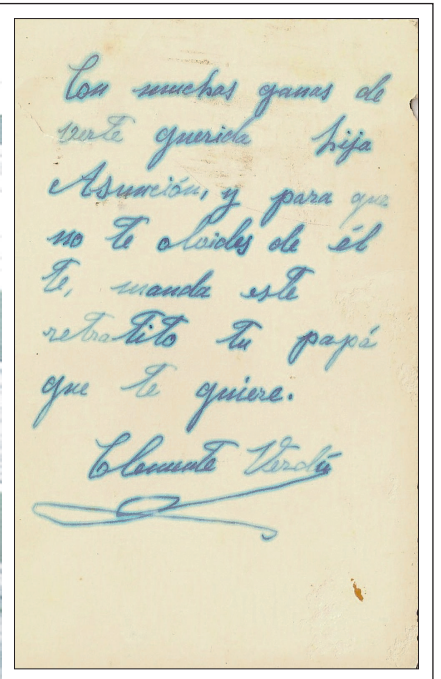 Con muchas ganas de
verte querida hija
Asunción, y para que
no te olvides de él
te, manda este
retratito tu papá
que te quiere.
Clemente Verdú